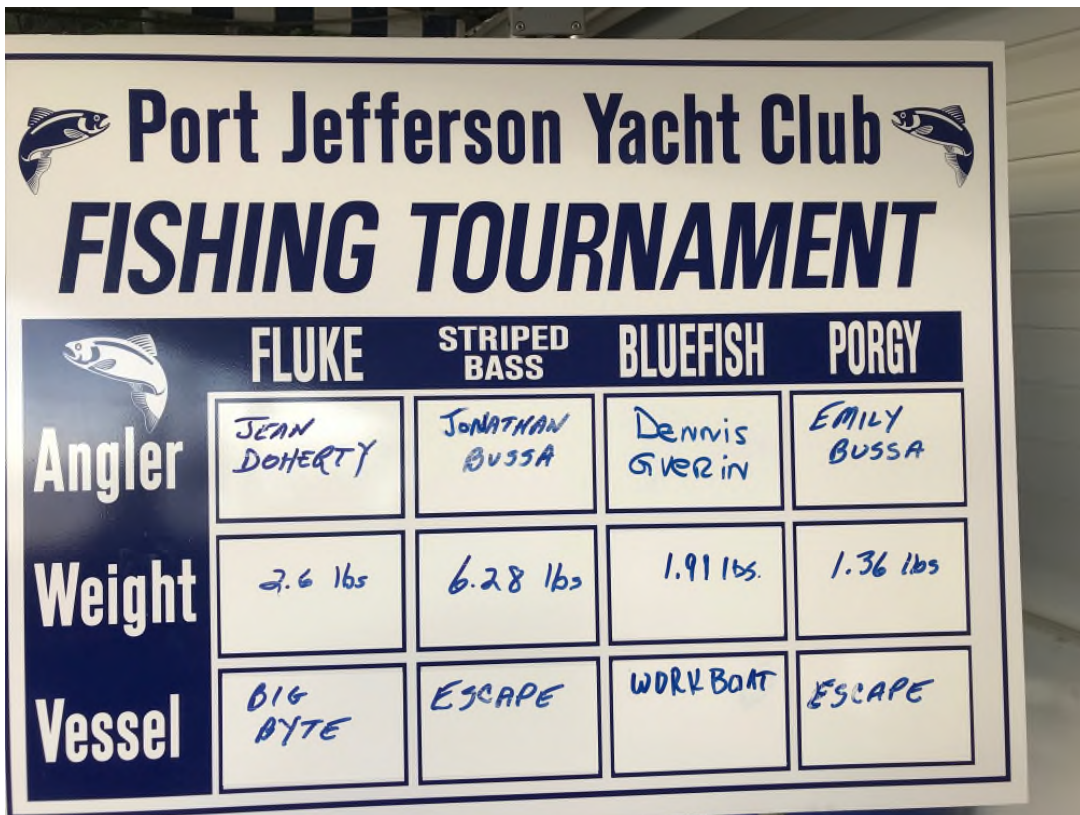 Port Jefferson Yacht Club
FISHING TOURNAMENT
FLUKE
STRIPED
BASS
BLUEFISH
PORGY
Angler
JEAN
DOHERTY
JONATHAN
BUSSA
Dennis
GUERIN
EMILY
BUSSA
Weight
2.6 lbs
6.28 lbs
1.91 lbs.
1.36 lbs
Vessel
BIG
BYTE
ESCAPE
WORKBOAT
ESCAPE